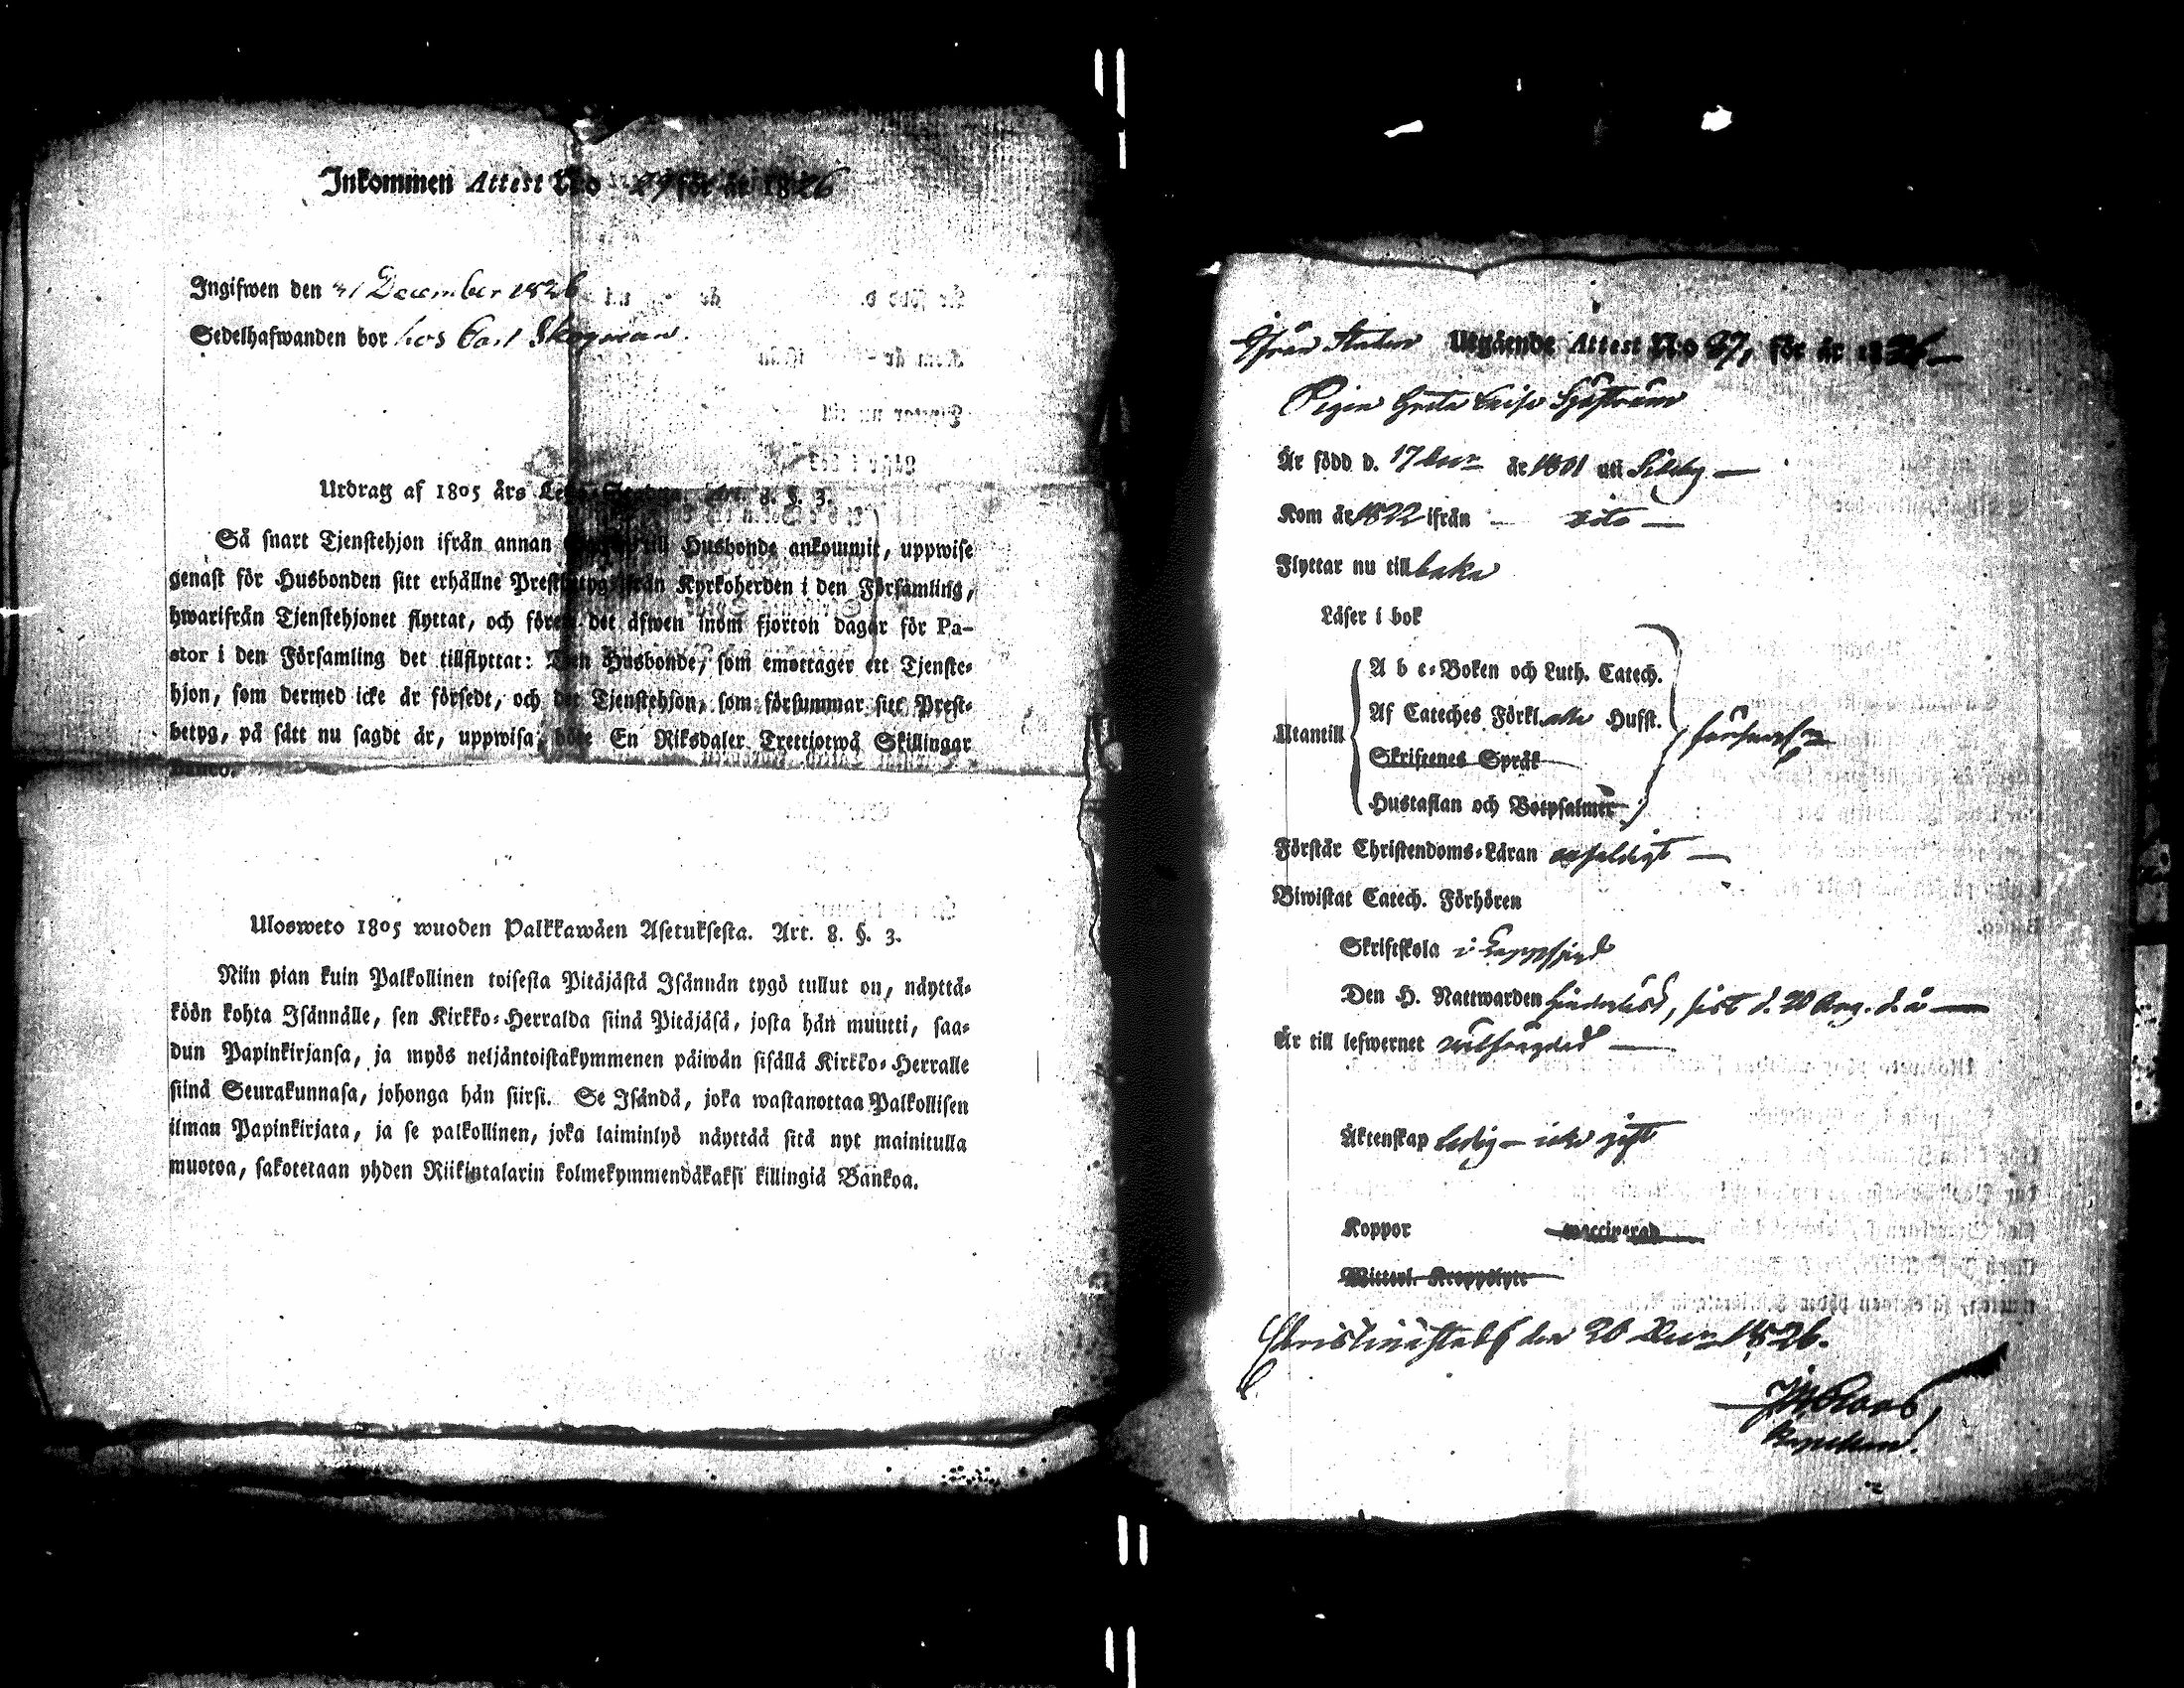 Inkommen Attest N:o 29 för år 1826
Ingifwen den 31 December 1826
Sedelhafwanden bor hos Carl Skogman.
Utdrag af 1805 års Lego-Stadga, Art. 8. §. 3.
Så snart Tjenstehjon ifrån annan till Husbonde ankommit, uppwise
genast för Husbonden sitt erhållne Prestbetyg ifrån Kyrkoherden i den Församling,
hwarifrån Tjenstehjonet flyttat, och förete det äfwen inom fjorton dagar för Pa-
stor i den Församling det tillflyttat: Den Husbonde, som emottager ett Tjenste-
hjon, som dermed icke är försedt, och det Tjenstehjon, som försummar sitt Prest-
betyg, på sätt nu sagdt är, uppwisa, böte En Riksdaler Trettiotwå Skillingar
Banco.
Ulosweto 1805 wuoden Palkkawäen Asetuksesta. Art. 8. §. 3.
Niin pian kuin Palkollinen toisesta Pitäjästä Isännän tygö tullut on, näyttä-
köön kohta Isännälle, sen Kirkko-Herralda siinä Pitäjäsä, josta hän muutti, saa-
dun Papinkirjansa, ja myös neljäntoistakymmenen päiwän sisällä Kirkko-Herralle
siinä Seurakunnasa, johonga hän siirsi. Se Isändä, joka wastanottaa Palkollisen
ilman Papinkirjata, ja se palkollinen, joka laiminlyö näyttää sitä nyt mainitulla
muotoa, sakotetaan yhden Riikintalarin kolmekymmendäkaksi killingiä Bankoa.
Ifrån Staden Utgående Attest N:o 37, för år 1826
Pigan Greta Caisa Sjöström
Är född d. 17 Decr år 1801 uti Sideby
Kom år 1822 ifrån dito
Flyttar nu tillbaka
Läser i bok
Utantill
A b c-Boken och Luth. Catech.
Af Cateches Förkl. alla Husst.
Skriftenes Språk
Hustaflan och Botpsalmer
försvarl.
Förstår Christendoms-Läran enfaldigt
Biwistat Catech. Förhören
Skriftskola i Lappfjerd
Den H. Nattwarden hinderlöst, sist d. 20 Aug. d. å
Är till lefwernet wälfrägdad
Äktenskap ledig – icke gift
Koppor waccinerad
Witterl. Kroppslyte
Christinæstad den 30 Decr 1826.